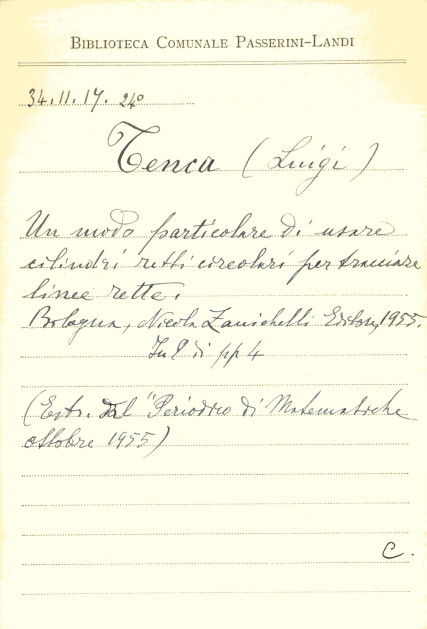 BIBLIOTECA COMUNALE PASSERINI-LANDI
34.11.17. 24º
Tenca (Luigi)
Un modo particolare di usare
cilindri retti circolari per tracciare
linee rette.
Bologna, Nicola Zanichelli Editore, 1955.
In 8 di pp 4
(Estr. dal "Periodico di Matematiche
ottobre 1955)
C.